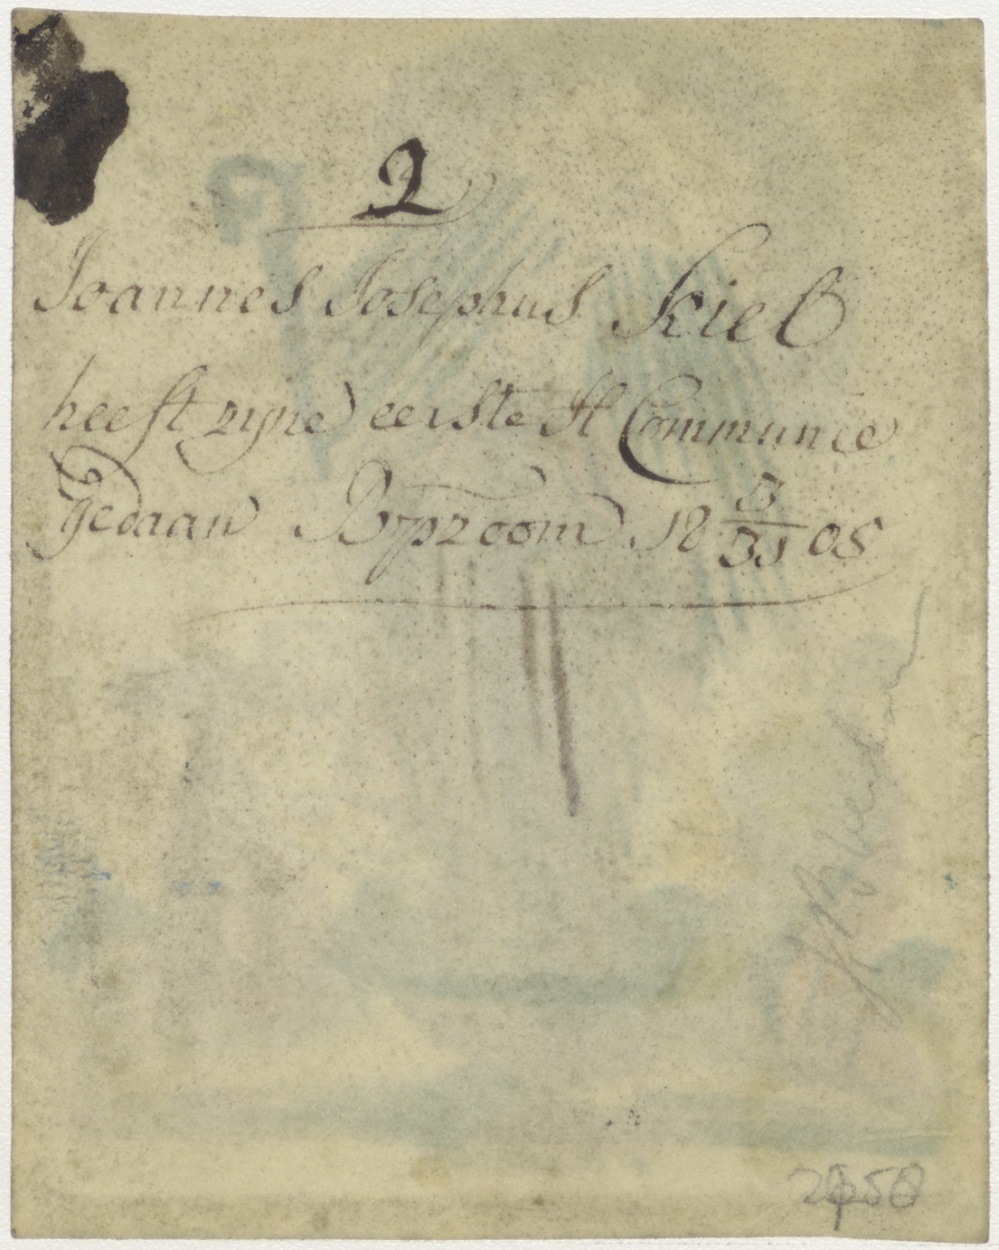 2
Joannes Josephus Kiel
heeft zyne eerste H Communie
Gedaan Bopzoom 18 3/31 05